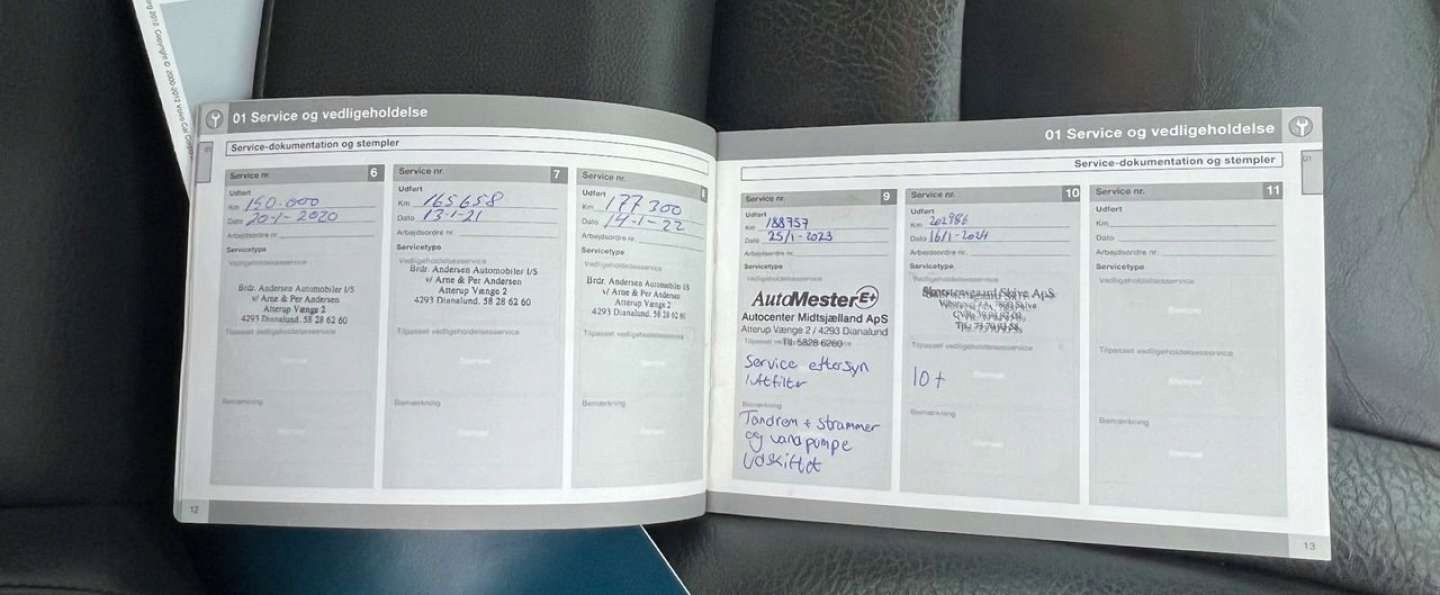 01 Service og vedligeholdelse
Service-dokumentation og stempler
Service nr. 6
Udført
Km 150.000
Dato 20-1-2020
Arbejdsordre nr.
Servicetype
Vedligeholdelsesservice
Brdr. Andersen Automobiler I/S
v/ Arne & Per Andersen
Atterup Vænge 2
4293 Dianalund. 58 28 62 60
Tilpasset vedligeholdelsesservice
Stempel
Bemærkning
Stempel
12
Service nr. 7
Udført
Km 165658
Dato 13-1-21
Arbejdsordre nr.
Servicetype
Vedligeholdelsesservice
Brdr. Andersen Automobiler I/S
v/ Arne & Per Andersen
Atterup Vænge 2
4293 Dianalund. 58 28 62 60
Tilpasset vedligeholdelsesservice
Stempel
Bemærkning
Stempel
Service nr. 8
Udført
Km 177300
Dato 14-1-22
Arbejdsordre nr.
Servicetype
Vedligeholdelsesservice
Brdr. Andersen Automobiler I/S
v/ Arne & Per Andersen
Atterup Vænge 2
4293 Dianalund. 58 28 62 60
Tilpasset vedligeholdelsesservice
Stempel
Bemærkning
Stempel
01 Service og vedligeholdelse
Service-dokumentation og stempler
01
Service nr. 9
Udført
Km 188757
Dato 25/1-2023
Arbejdsordre nr.
Servicetype
Vedligeholdelsesservice
AutoMester E+
Autocenter Midtsjælland ApS
Atterup Vænge 2 / 4293 Dianalund
Tlf. 5828 6260
Tilpasset vedligeholdelsesservice
Service eftersyn
luftfilter
Bemærkning
Tandrem + strammer
og vandpumpe
Udskiftet
Service nr. 10
Udført
Km 202986
Dato 16/1-2024
Arbejdsordre nr.
Servicetype
Vedligeholdelsesservice
Skive ApS
Tilpasset vedligeholdelsesservice
10+
Stempel
Bemærkning
Stempel
Service nr. 11
Udført
Km
Dato
Arbejdsordre nr.
Servicetype
Vedligeholdelsesservice
Stempel
Tilpasset vedligeholdelsesservice
Stempel
Bemærkning
Stempel
13